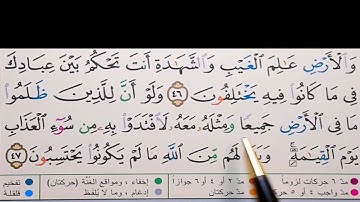 وَالْأَرْضِ عَالِمَ الْغَيْبِ وَالشَّهَادَةِ أَنتَ تَحْكُمُ بَيْنَ عِبَادِكَ
فِي مَا كَانُوا فِيهِ يَخْتَلِفُونَ ٤٦ وَلَوْ أَنَّ لِلَّذِينَ ظَلَمُوا
مَا فِي الْأَرْضِ جَمِيعًا وَمِثْلَهُ مَعَهُ لَافْتَدَوْا بِهِ مِن سُوءِ الْعَذَابِ
يَوْمَ الْقِيَامَةِ وَبَدَا لَهُم مِّنَ اللَّهِ مَا لَمْ يَكُونُوا يَحْتَسِبُونَ ٤٧
مدّ ٦ حركات لزوماً مدّ ٢ أو ٤ أو ٦ جوازاً إخفاء، ومواقع الغنّة (حركتان) تفخيم
مدّ واجب ٤ أو ٥ حركات مدّ حركتان إدغام، وما لا يُلفظ قلقلة